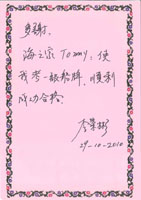 多謝
海之家 Tommy, 使
我考一級船牌, 順利
成功合格.
29-10-2010